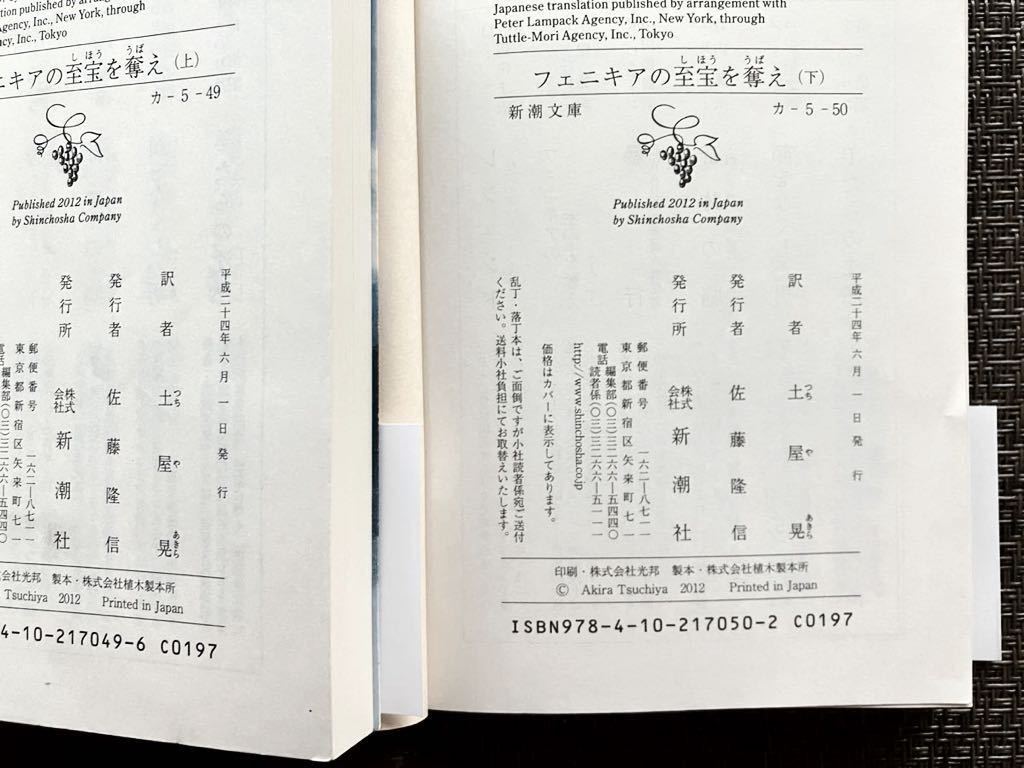 al translation published by arrange
Agency, Inc., New York, through
ncy, Inc., Tokyo
ニキアの至宝を奪え（上）
しほう うば
カ-5-49
Published 2012 in Japan
by Shinchosha Company
平成二十四年六月一日発行
訳者 土屋晃
つちや あきら
発行者 佐藤隆信
発行所 株式会社新潮社
郵便番号 一六二―八七一一
東京都新宿区矢来町七一
電話 編集部(〇三)三二六六―五四四〇
式会社光邦 製本・株式会社植木製本所
Tsuchiya 2012 Printed in Japan
4-10-217049-6 C0197
Japanese translation published by arrangement with
Peter Lampack Agency, Inc., New York, through
Tuttle-Mori Agency, Inc., Tokyo
フェニキアの至宝を奪え（下）
しほう うば
新潮文庫
カ-5-50
Published 2012 in Japan
by Shinchosha Company
平成二十四年六月一日発行
訳者 土屋晃
つちや あきら
発行者 佐藤隆信
発行所 株式会社新潮社
郵便番号 一六二―八七一一
東京都新宿区矢来町七一
電話 編集部(〇三)三二六六―五四四〇
読者係(〇三)三二六六―五一一一
http://www.shinchosha.co.jp
価格はカバーに表示してあります。
乱丁・落丁本は、ご面倒ですが小社読者係宛ご送付
ください。送料小社負担にてお取替えいたします。
印刷・株式会社光邦 製本・株式会社植木製本所
© Akira Tsuchiya 2012 Printed in Japan
ISBN978-4-10-217050-2 C0197